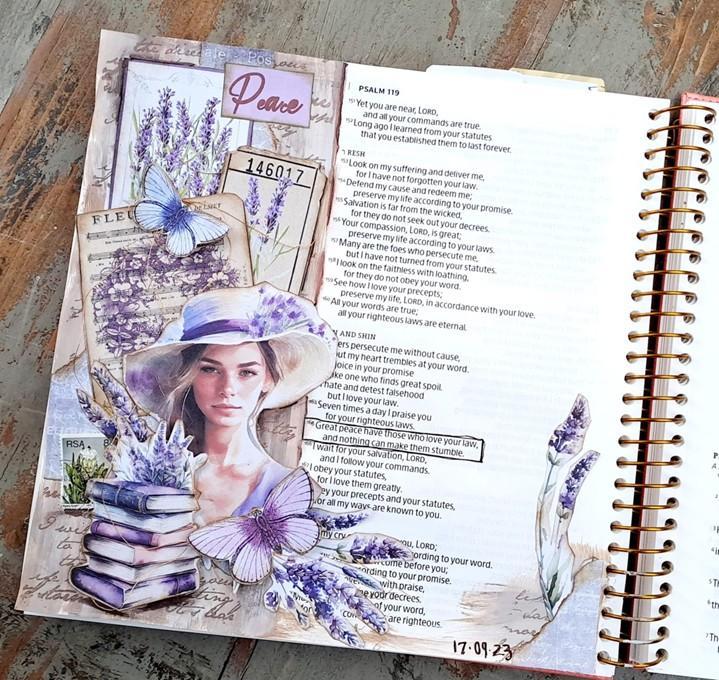 Peace
146017
FLEU
RSA
PSALM 119
151 Yet you are near, LORD,
and all your commands are true.
152 Long ago I learned from your statutes
that you established them to last forever.
RESH
153 Look on my suffering and deliver me,
for I have not forgotten your law.
154 Defend my cause and redeem me;
preserve my life according to your promise.
155 Salvation is far from the wicked,
for they do not seek out your decrees.
156 Your compassion, LORD, is great;
preserve my life according to your laws.
157 Many are the foes who persecute me,
but I have not turned from your statutes.
158 I look on the faithless with loathing,
for they do not obey your word.
159 See how I love your precepts;
preserve my life, LORD, in accordance with your love.
160 All your words are true;
all your righteous laws are eternal.
AND SHIN
ers persecute me without cause,
ut my heart trembles at your word.
joice in your promise
ke one who finds great spoil.
hate and detest falsehood
but I love your law.
164 Seven times a day I praise you
for your righteous laws.
165 Great peace have those who love your law,
and nothing can make them stumble.
166 I wait for your salvation, LORD,
and I follow your commands.
I obey your statutes,
for I love them greatly.
ey your precepts and your statutes,
for all my ways are known to you.
my cry you, LORD;
ording to your word.
come before you;
ording to your promise.
with praise,
e your decrees.
of your word,
are righteous.
17.09.23